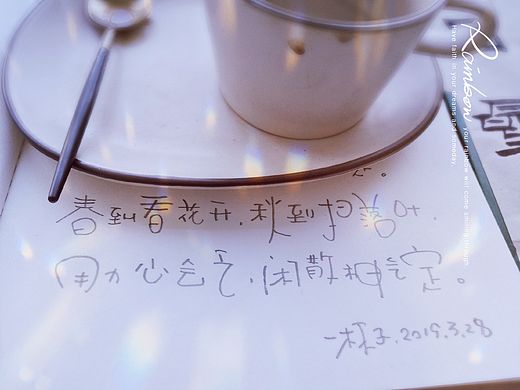 春到看花开,秋到扫落叶.
用力心会乏,闲散神气定。
一杯子.2019.3.28
Rainbow your rainbow will come smiling through
Have faith in your dreams and someday,